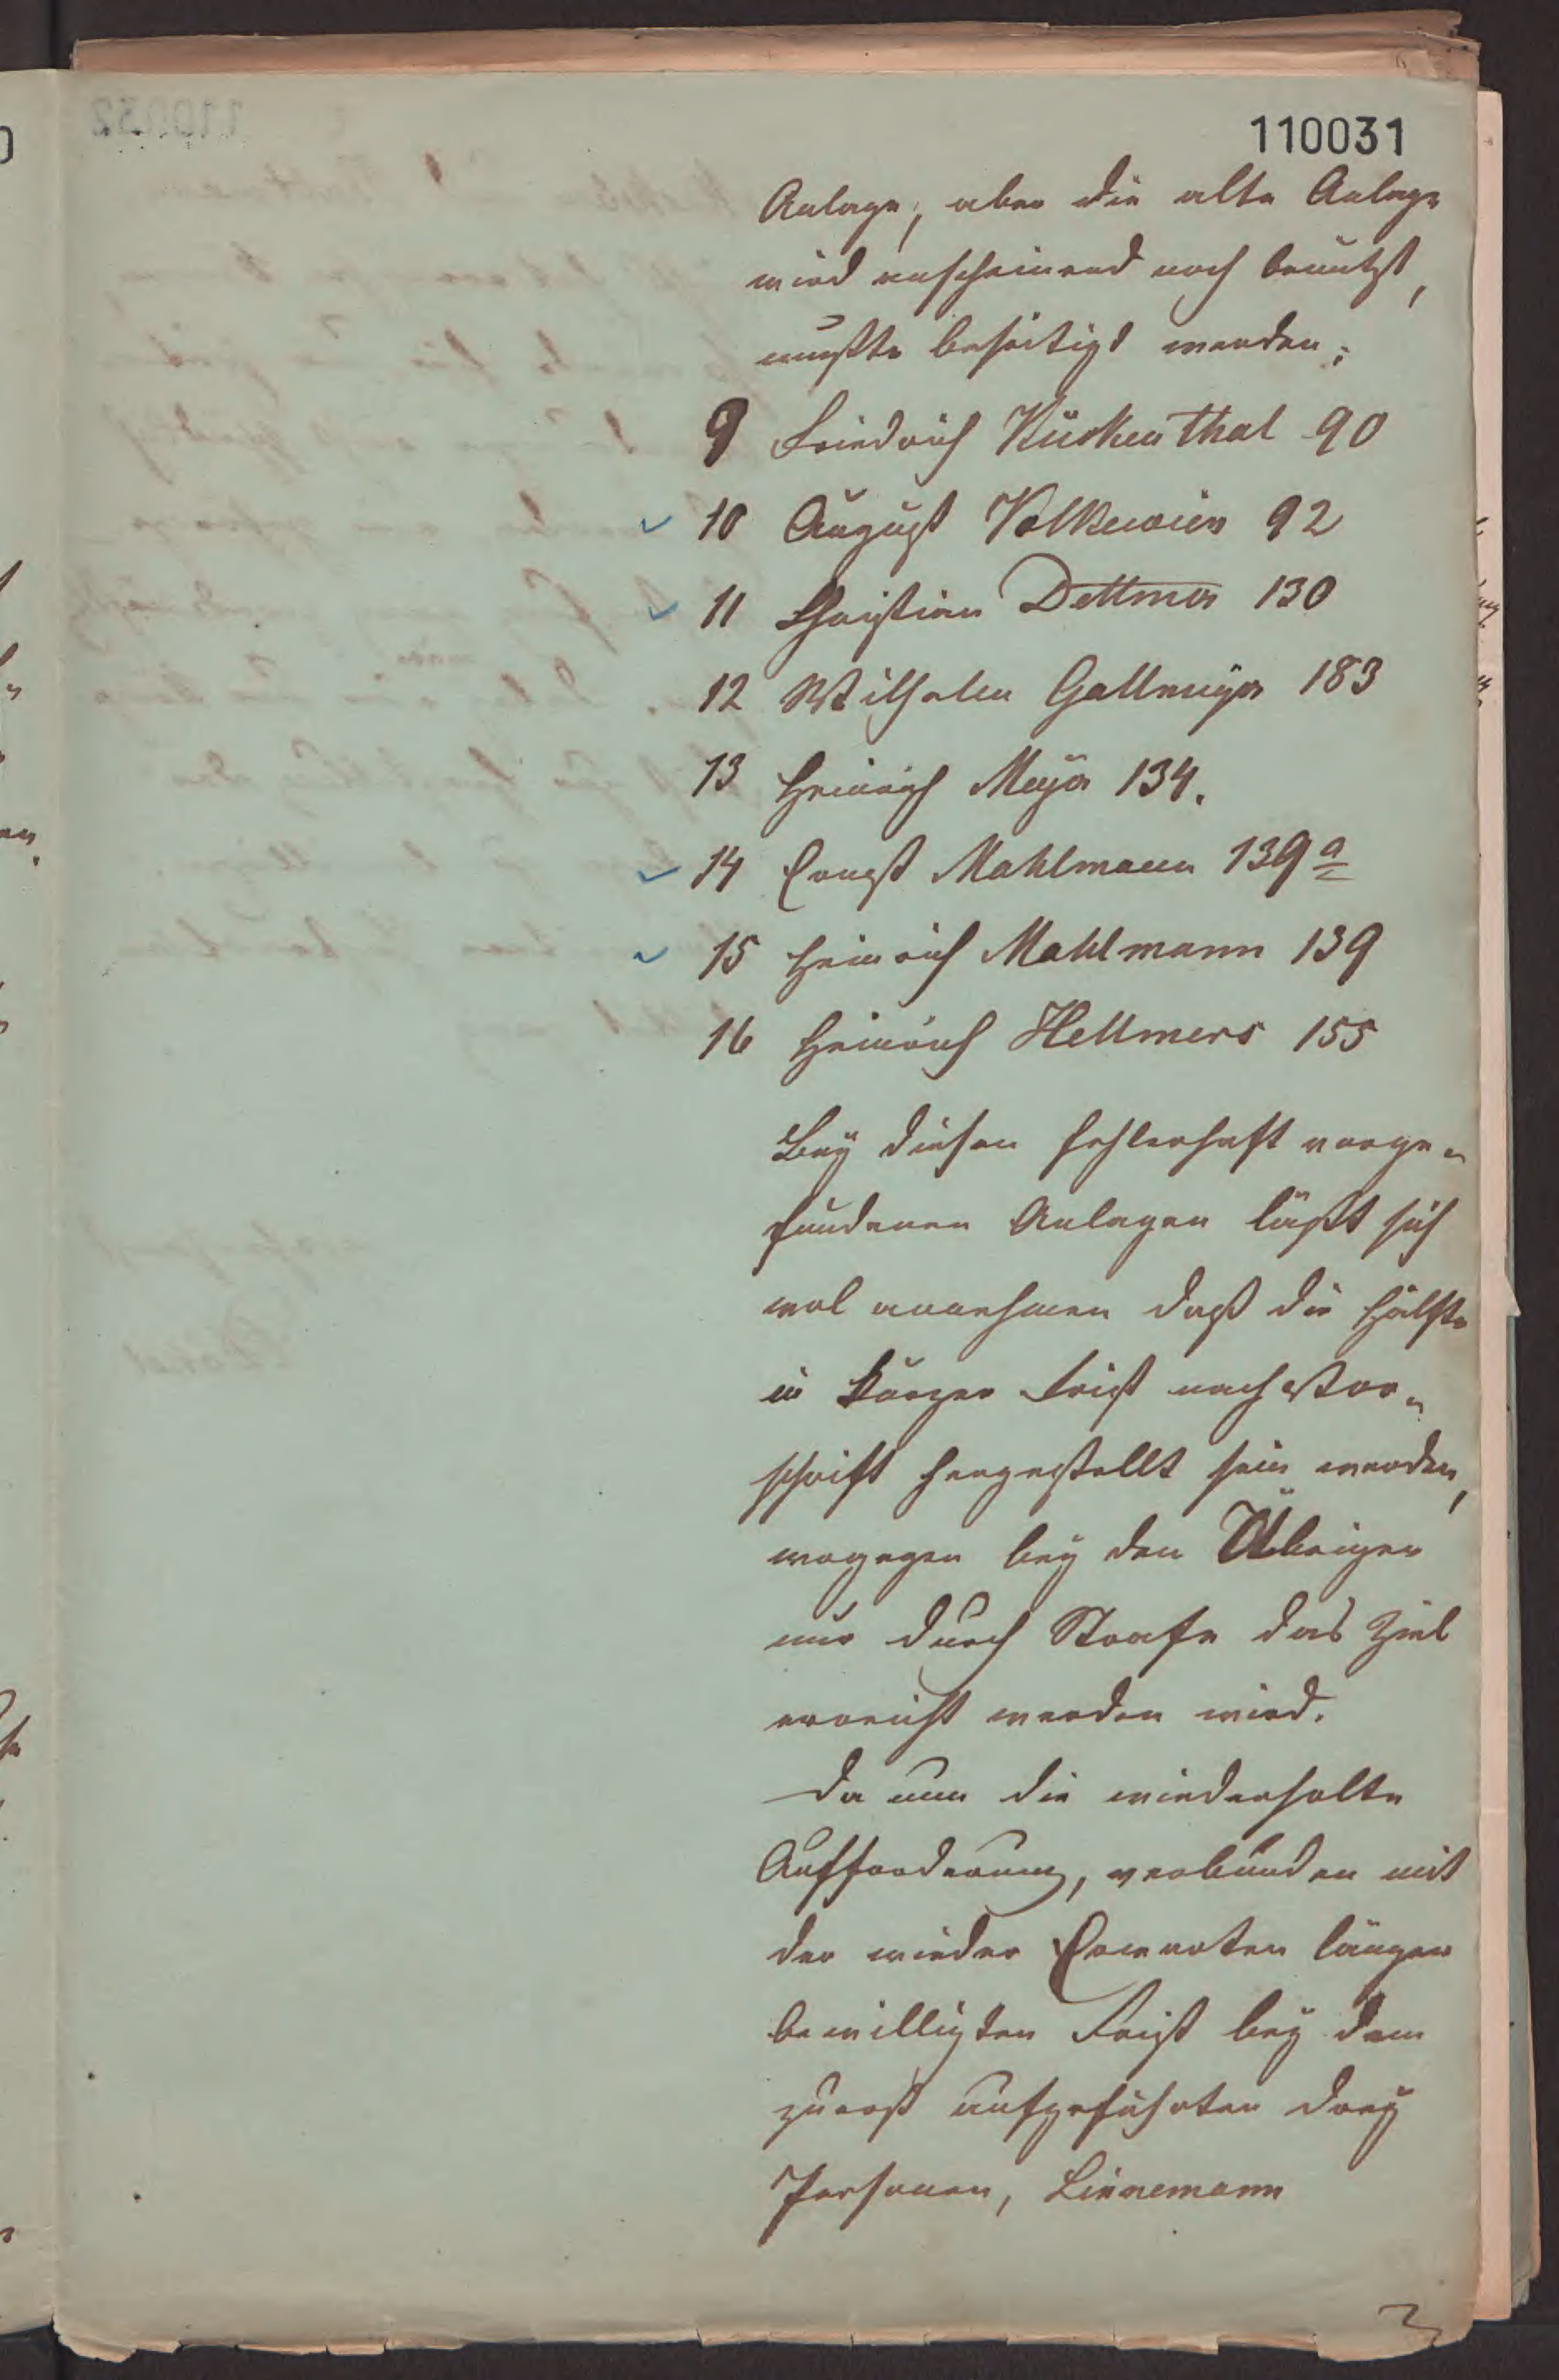 110031
Anlage, aber die alte Anlage
wird anscheinend noch benützt,
müßte beseitigt werden;
9 Friedrich Kückenthal 90
10 August Volkewien 92
11 Christian Dettmer 130
12 Wilhelm Gallmeÿer 183
13 Heinrich Meÿer 134.
14 Ernst Mahlmann 139a
15 Heinrich Mahlmann 139
16 Heinrich Hellmers 155
Beÿ diesen fehlerhaft vorge-
fundenen Anlagen läßt sich
wol annehmen daß die Hälfte
in kurzer Frist nach Vor-
schrift hergestellt sein werden,
wogegen beÿ den Übrigen
nur durch Strafe das Ziel
erreicht werden wird.
Da nun die wiederholte
Aufforderung, verbunden mit
der wieder Erwarten länger
bewilligten Frist beÿ dem
zuerst aufgeführten dreÿ
Personen, Linnemann